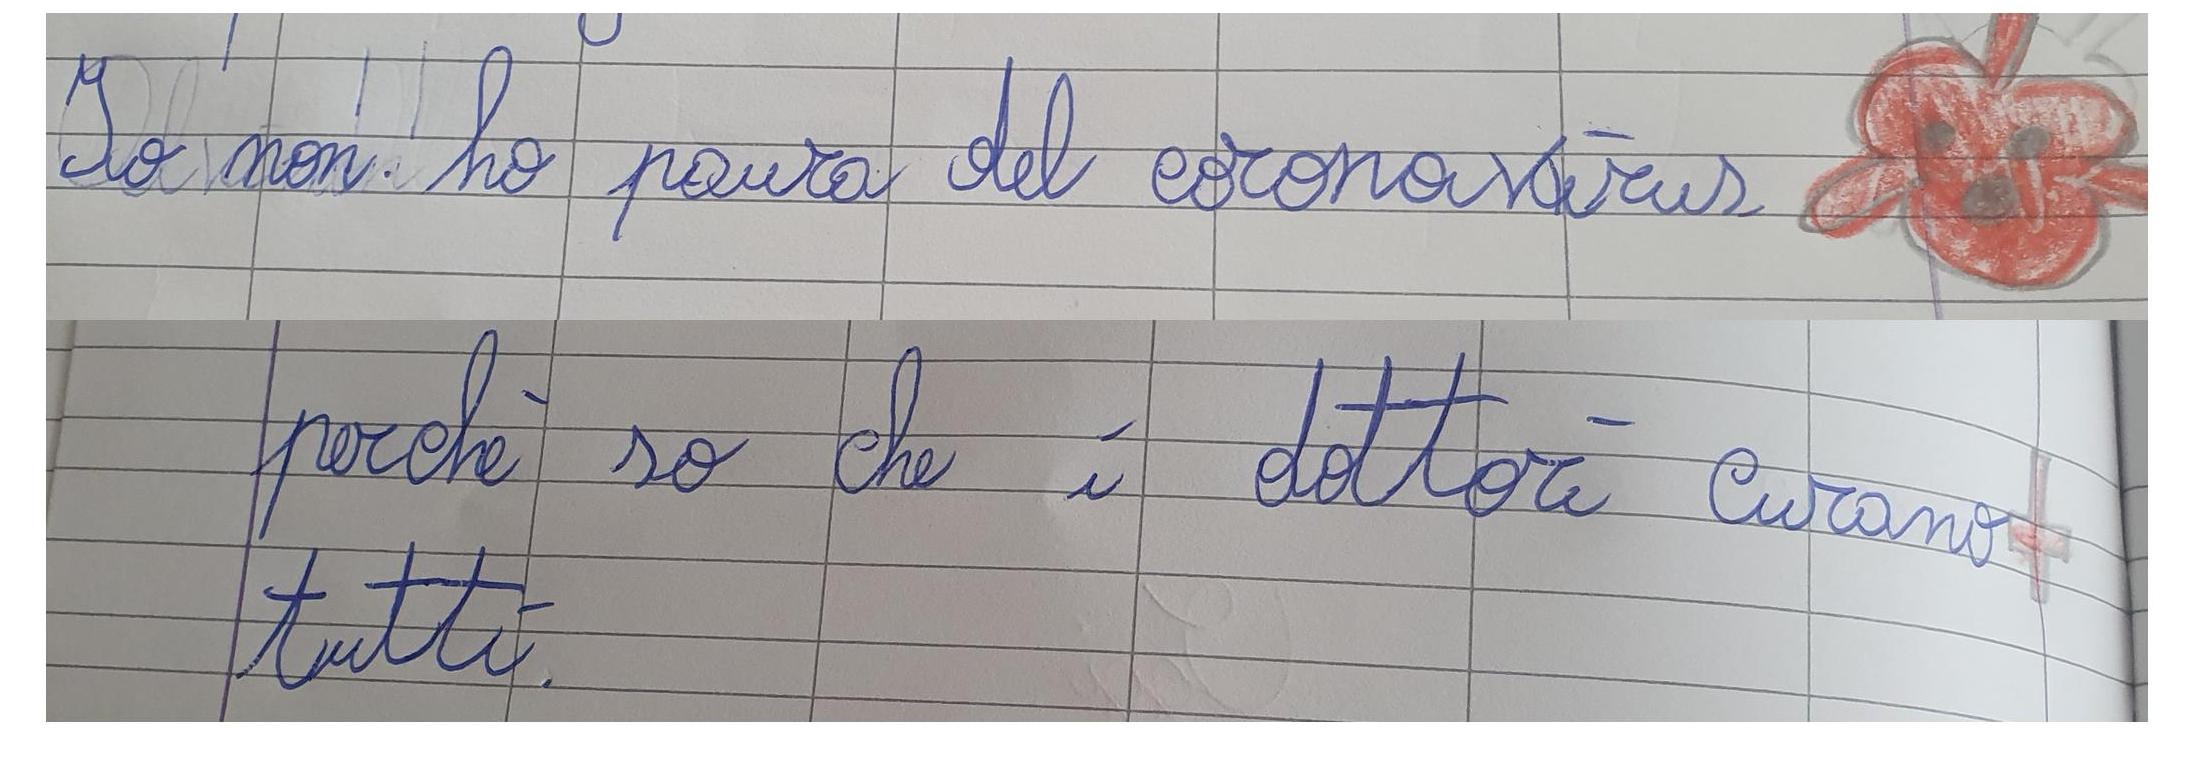 Io non ho paura del coronavirus
perchè so che i dottori curano
tutti.